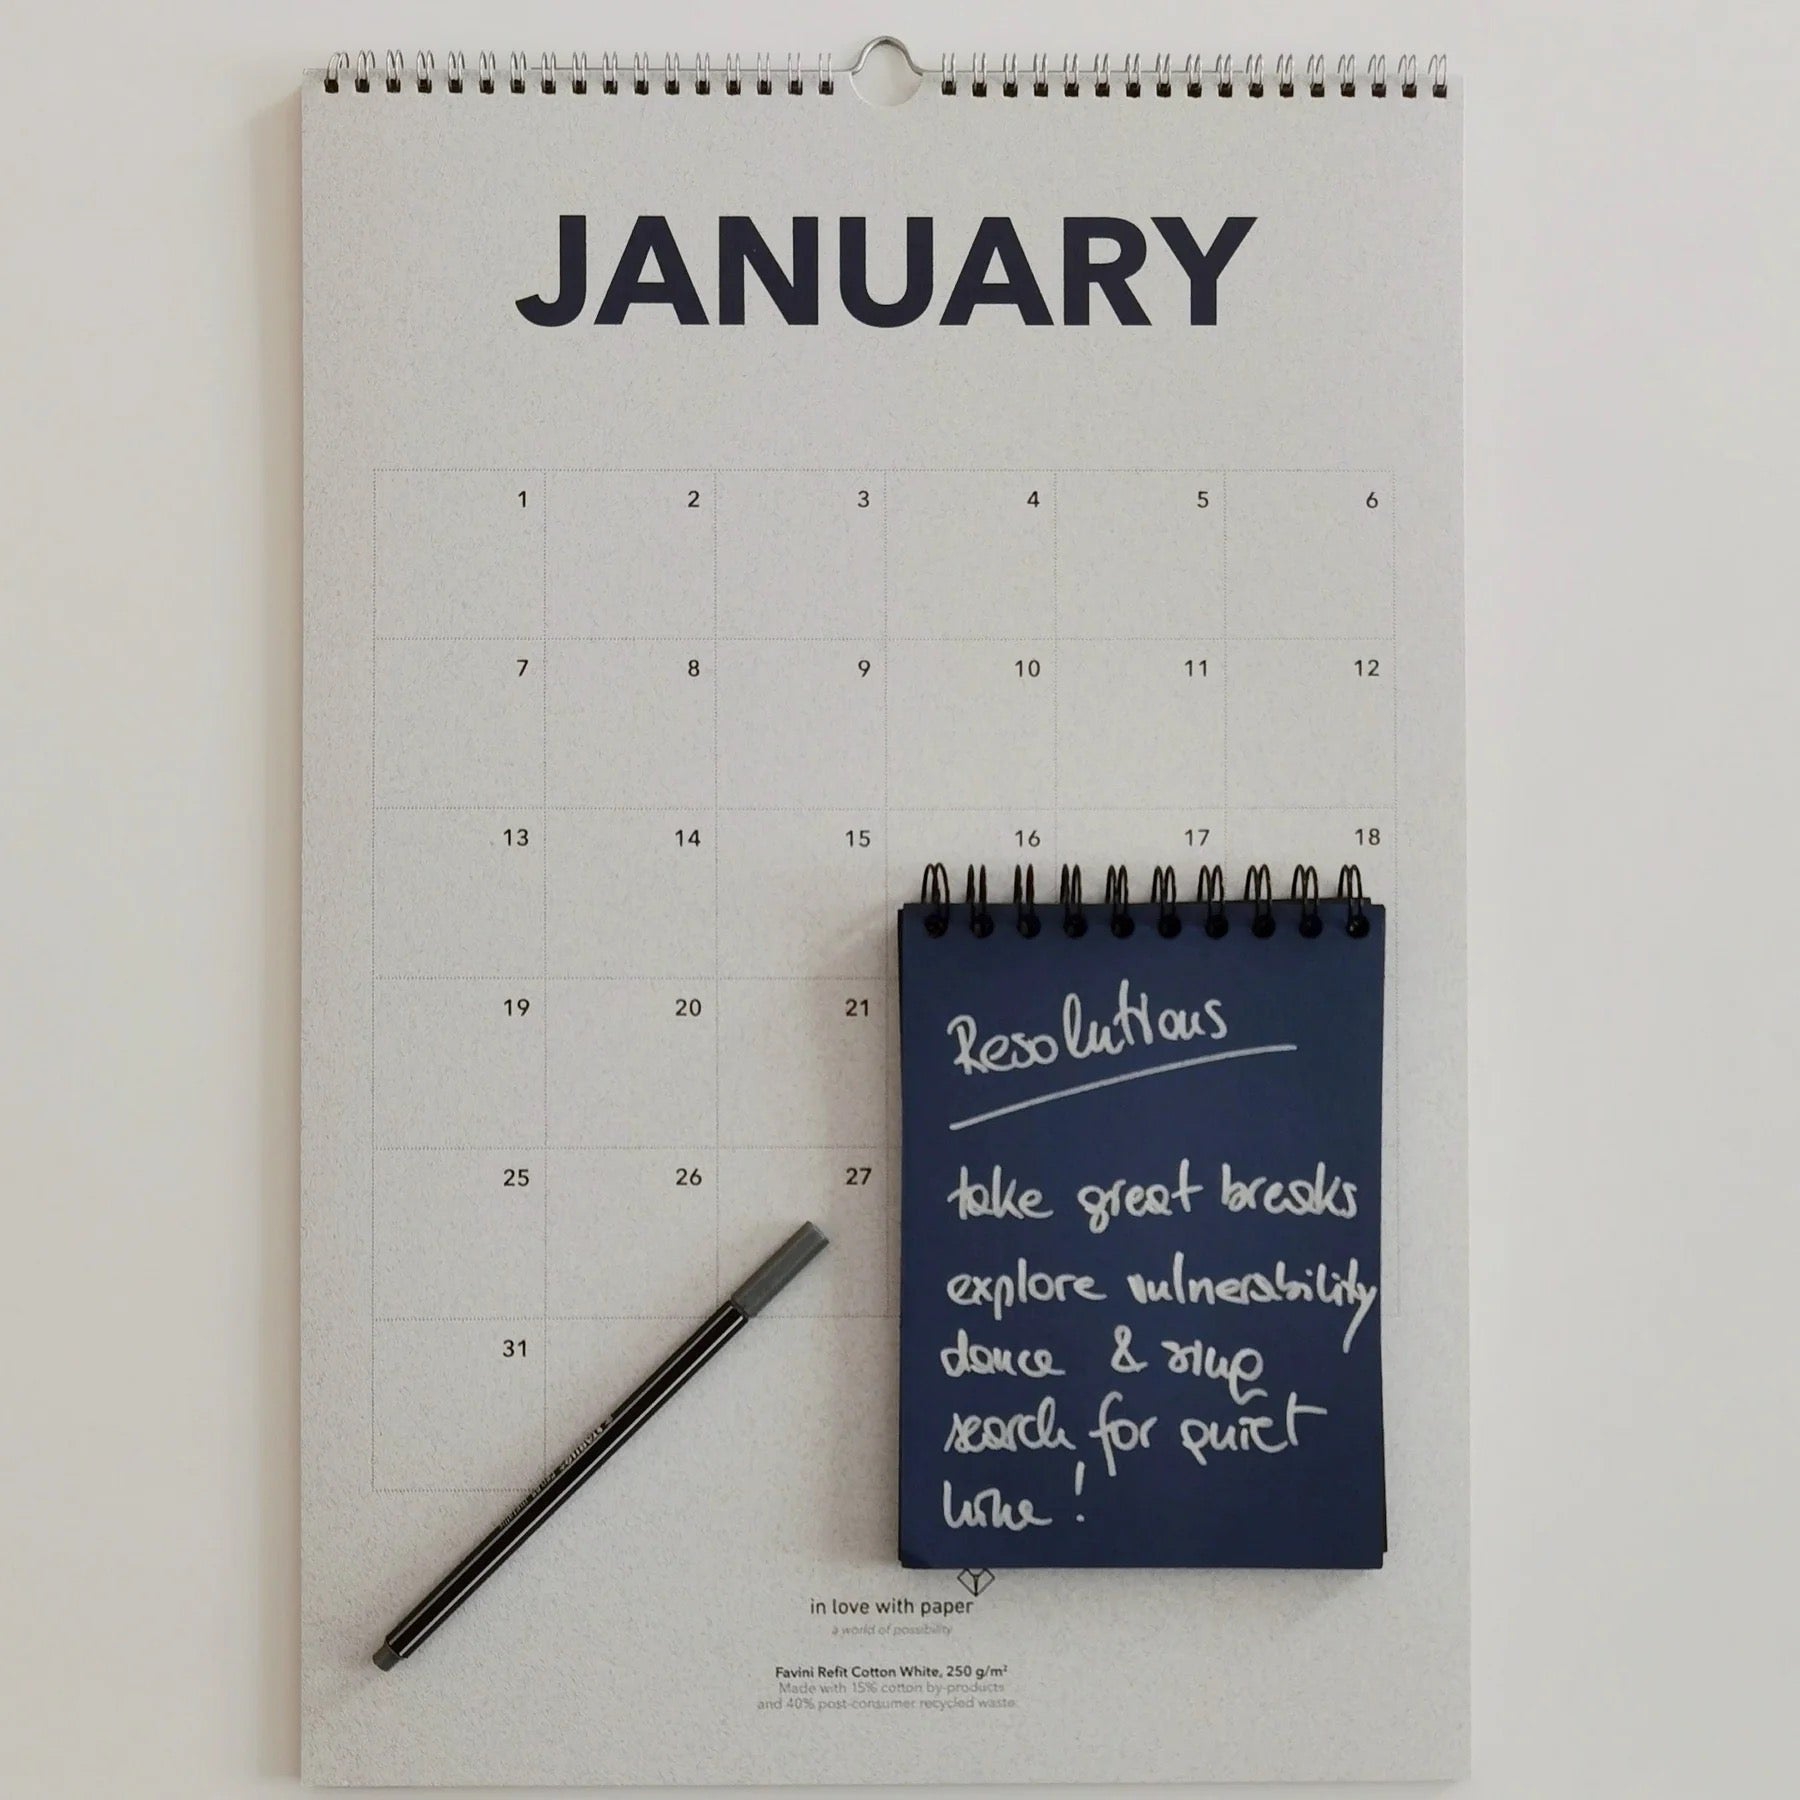 JANUARY
1 2 3 4 5 6
7 8 9 10 11 12
13 14 15 16 17 18
19 20 21
25 26 27
31
Resolutions
take great breaks
explore vulnerability
dance & sing
search for quiet
in love with paper
a world of possibility
Favini Refit Cotton White, 250 g/m²
Made with 15% cotton by-products
and 40% post-consumer recycled waste